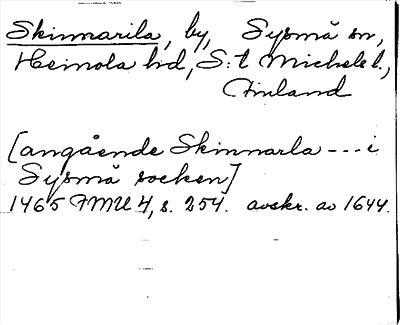 Skinnarila, by, Sysmä sn,
Heinola hd, S:t Michels l.,
Finland
[angående Skinnarla --- i
Sysmä socken]
1465 FMU 4, s. 254. avskr. av 1644.